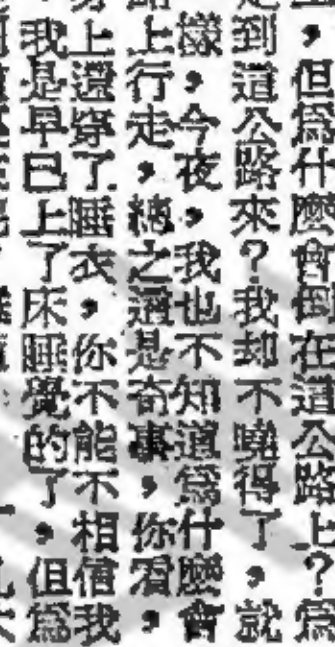 ，但爲什麼會倒在這公路上？爲
到這公路來？我却不曉得了，就
樣，今夜，我也不知道爲什麼會
上行走，總之這是奇事，你看，
上還穿了睡衣，你不能不相信我
我是早已上了床睡覺的了，但爲